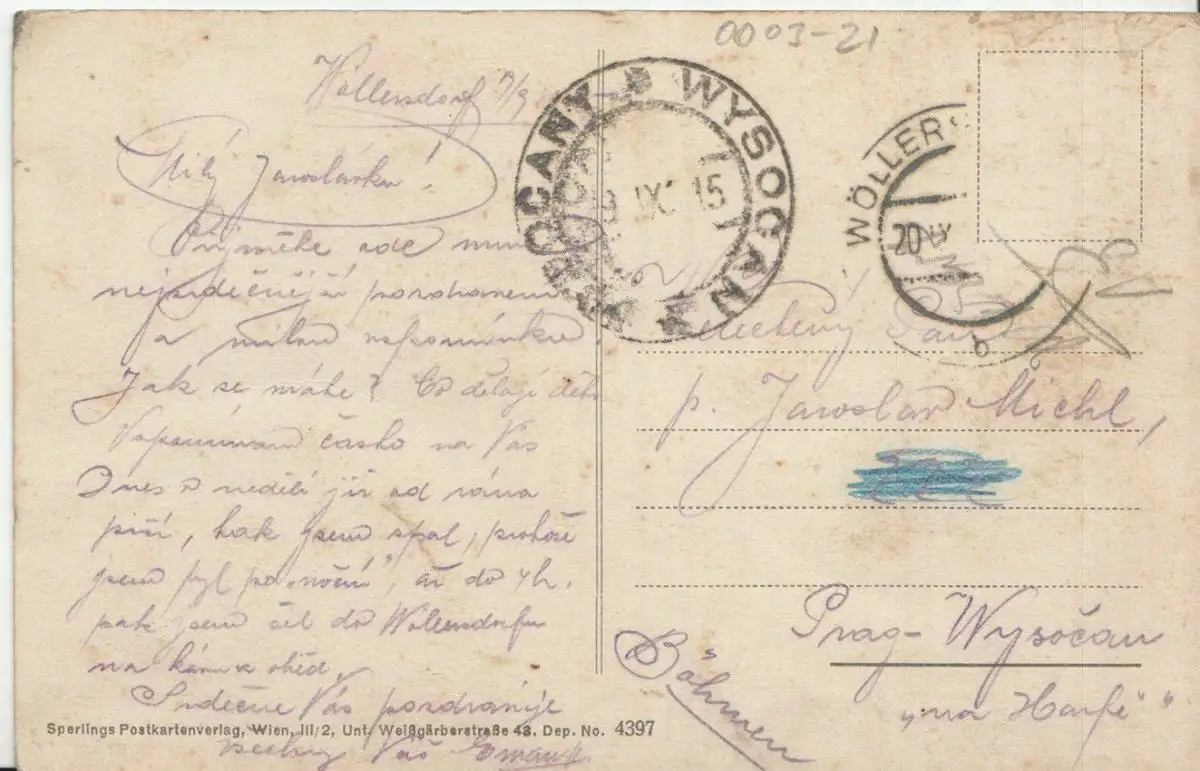 0003-21
Wöllersdorf 7/9
Milý Jaroslávku!
Přijměte ode mne
nejsrdečnější pozdravení
a milou vzpomínku
Jak se máte? Co dělají děti
Vzpomínám často na Vás
Dnes v neděli již od rána
prší, tak jsem spal, protože
jsem byl po noční", až do 4h.
pak jsem šel do Wöllersdorfu
na
Srdečně Vás pozdravuje
všechny Váš
WYSOČANY WYSOČAN
9 IX 15
WÖLLERS
20 IX
b
Velectěný Pan
p. Jaroslav Michl,
Prag- Wysočan
„na Harfě"
Böhmen
Sperlings Postkartenverlag, Wien, III/2, Unt. Weißgärberstraße 43. Dep. No. 4397